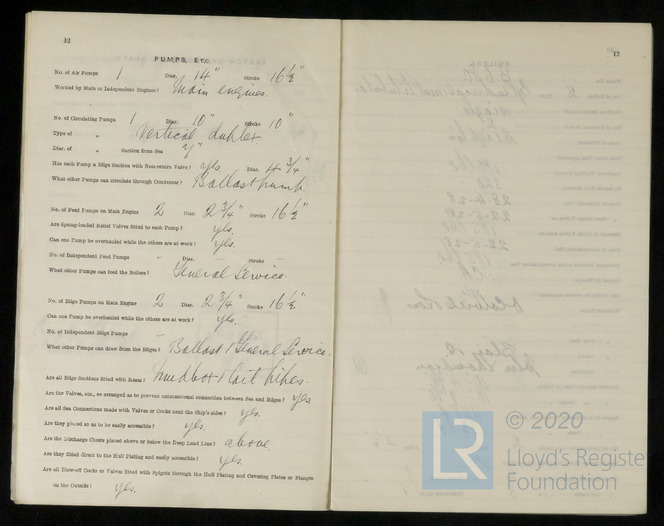 12
PUMPS, ETC.
No. of Air Pumps 1 Diar. 14" Stroke 16½"
Worked by Main or Independent Engines? Main engines.
No. of Circulating Pumps 1 Diar. 10" Stroke 10"
Type of " Vertical duplex
Diar. of " Suction from Sea 7"
Has each Pump a Bilge Suction with Non-return Valve? Yes Diar. 4 3/4"
What other Pumps can circulate through Condenser? Ballast pump
No. of Feed Pumps on Main Engine 2 Diar. 2 3/4" Stroke 16½"
Are Spring-loaded Relief Valves fitted to each Pump? Yes.
Can one Pump be overhauled while the others are at work? Yes.
No. of Independent Feed Pumps - Diar. - Stroke -
What other Pumps can feed the Boilers? General Service.
No. of Bilge Pumps on Main Engine 2 Diar. 2 3/4" Stroke 16½"
Can one Pump be overhauled while the others are at work? Yes.
No. of Independent Bilge Pumps -
What other Pumps can draw from the Bilges? Ballast & General Service.
Are all Bilge Suctions fitted with Roses? Mudbox & tail pipes.
Are the Valves, etc., so arranged as to prevent unintentional connection between Sea and Bilges? Yes
Are all Sea Connections made with Valves or Cocks next the Ship's sides? Yes.
Are they placed so as to be easily accessible? Yes.
Are the Discharge Chests placed above or below the Deep Load Line? above.
Are they fitted direct to the Hull Plating and easily accessible? Yes.
Are all Blow-off Cocks or Valves fitted with Spigots through the Hull Plating and Covering Plates or Flanges
on the Outside? Yes.
12
© 2020
LR
Lloyd's Registe
Foundation